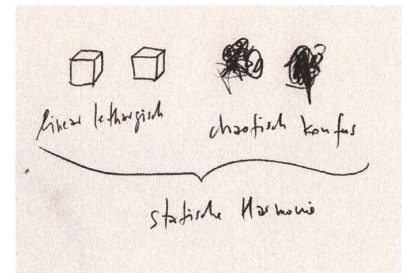 linear lethargisch chaotisch konfus
statische Harmonie